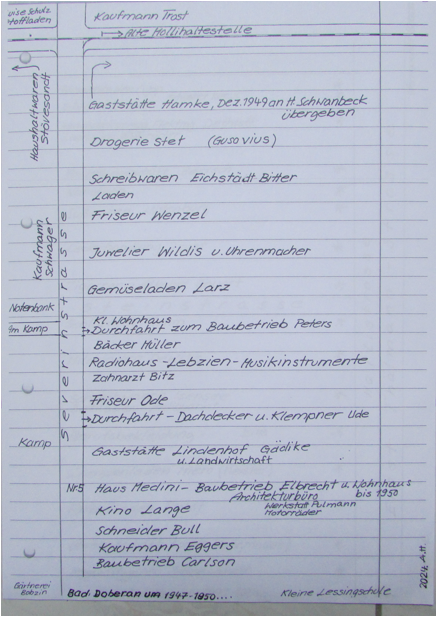 uise Schulz
Stoffladen
Kaufmann Trost
Alte Mollihaltestelle
Haushaltwaren
Stövesandt
Gaststätte Hamke, Dez. 1949 an H. Schwanbeck
übergeben
Drogerie Stet (Gusovius)
Schreibwaren Eichstädt Bitter
Laden
Friseur Wenzel
Kaufmann
Schwager
Severinstrasse
Juwelier Wildis u. Uhrenmacher
Gemüseladen Larz
Notenbank
Am Kamp
Kl. Wohnhaus
Durchfahrt zum Baubetrieb Peters
Bäcker Müller
Radiohaus - Lebzien - Musikinstrumente
Zahnarzt Bitz
Friseur Ode
Durchfahrt - Dachdecker u. Klempner Ude
Kamp
Gaststätte Lindenhof Gädike
u. Landwirtschaft
Nr 5 Haus Medini - Baubetrieb Elbrecht u. Wohnhaus
Architekturbüro bis 1950
Kino Lange
Werkstatt Pulmann
Motorräder
Schneider Bull
Kaufmann Eggers
Baubetrieb Carlson
Gärtnerei
Bobzin
Bad. Doberan um 1947-1950....
Kleine Lessingschule